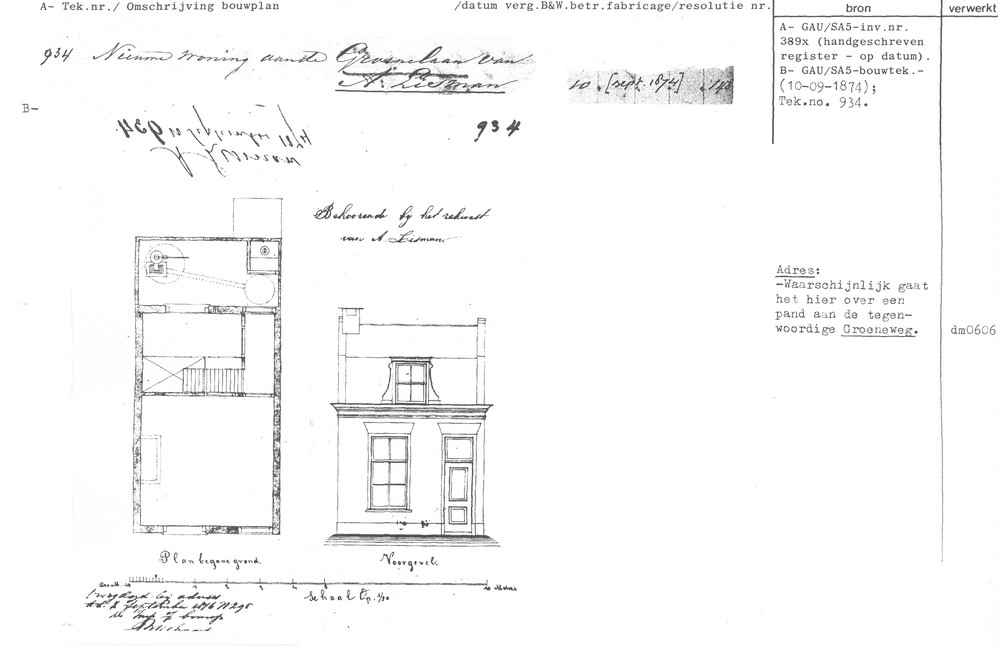 A- Tek.nr./ Omschrijving bouwplan /datum verg.B&W.betr.fabricage/resolutie nr.
bron
verwerkt
934 Nieuwe woning aan de Groenelaan van
A. Lisman
10 [sept. 1874] 148
A- GAU/SA5-inv.nr.
389x (handgeschreven
register - op datum).
B- GAU/SA5-bouwtek.-
(10-09-1874);
Tek.no. 934.
B-
934
934
Behoorende bij het rekwest
van A. Lisman
Adres:
-Waarschijnlijk gaat
het hier over een
pand aan de tegen-
woordige Groeneweg.
dm0606
Plan begane grond.
Voorgevel.
Schaal